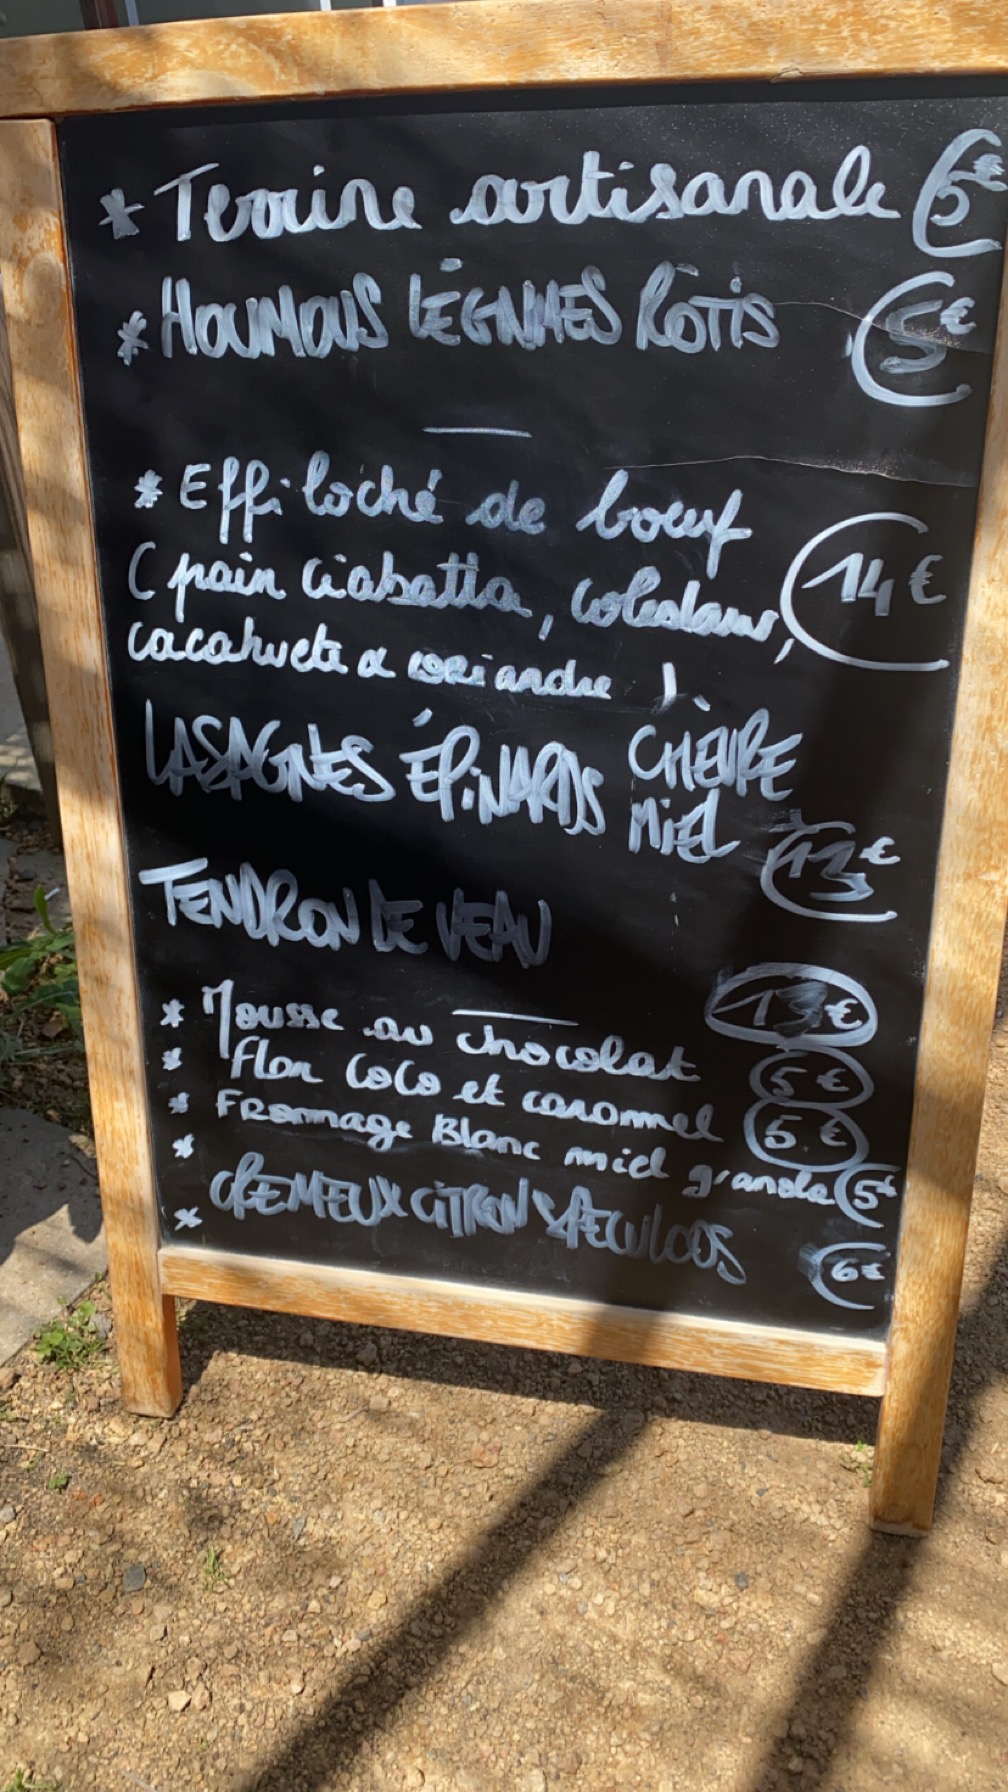 * Terrine artisanale 5€
* HOUMOUS LÉGUMES RÔTIS 5€
* Effiloché de boeuf
( pain ciabatta, coleslaw, 14€
cacahuete & coriandre )
LASAGNES ÉPINARDS CHÈVRE
MIEL 13€
TENDRON DE VEAU
* Mousse au chocolat 5€
* Flan coco et caramel 5€
* Fromage Blanc miel granola 5€
*
* CREMEUX CITRON SPECULOOS 6€